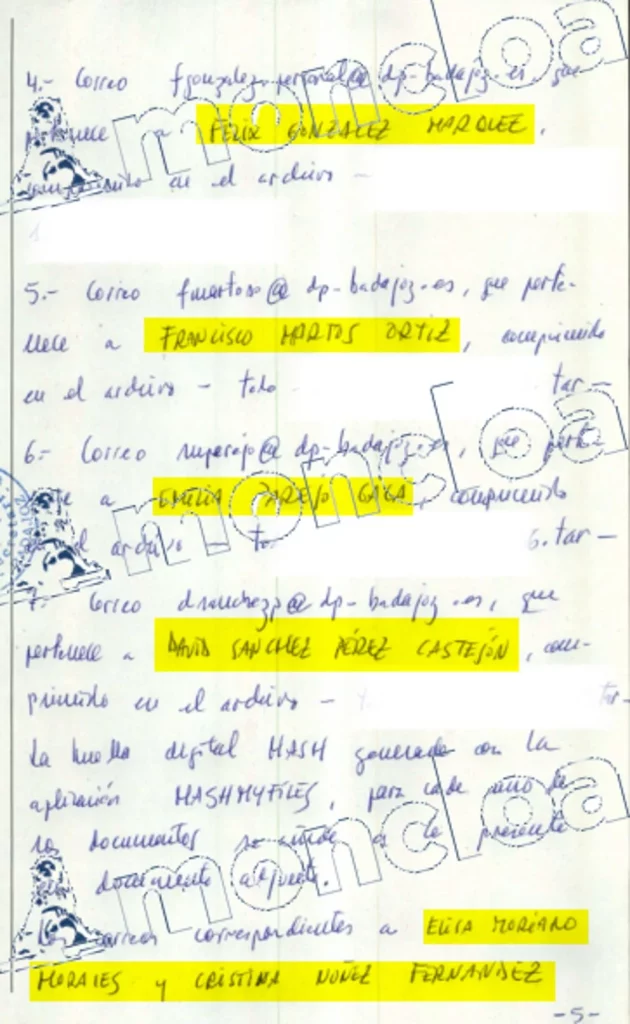 4.- Correo fgonzalez.personal@dp-badajoz.es, que
pertenece a FÉLIX GONZÁLEZ MÁRQUEZ,
comprimido en el archivo -
5.- Correo fmartoso@dp-badajoz.es, que perte-
nece a FRANCISCO MARTOS ORTIZ, comprimido
en el archivo - todo tar -
6.- Correo mparejo@dp-badajoz.es, que perte
a EMILIA PAREJO, comprimido
el archivo - 6.tar -
7.- Correo dsanchezp@dp-badajoz.es, que
pertenece a DAVID SANCHEZ PÉREZ CASTEJÓN, com-
primido en el archivo - tar-
La huella digital HASH generada con la
aplicación HASHMYFILES, para cada uno de
los documentos se en el presente
documento adjunto.
Los correos correspondientes a ELISA MORIANO
MORALES y CRISTINA NÚÑEZ FERNÁNDEZ
-5-
moncloa
moncloa
moncloa